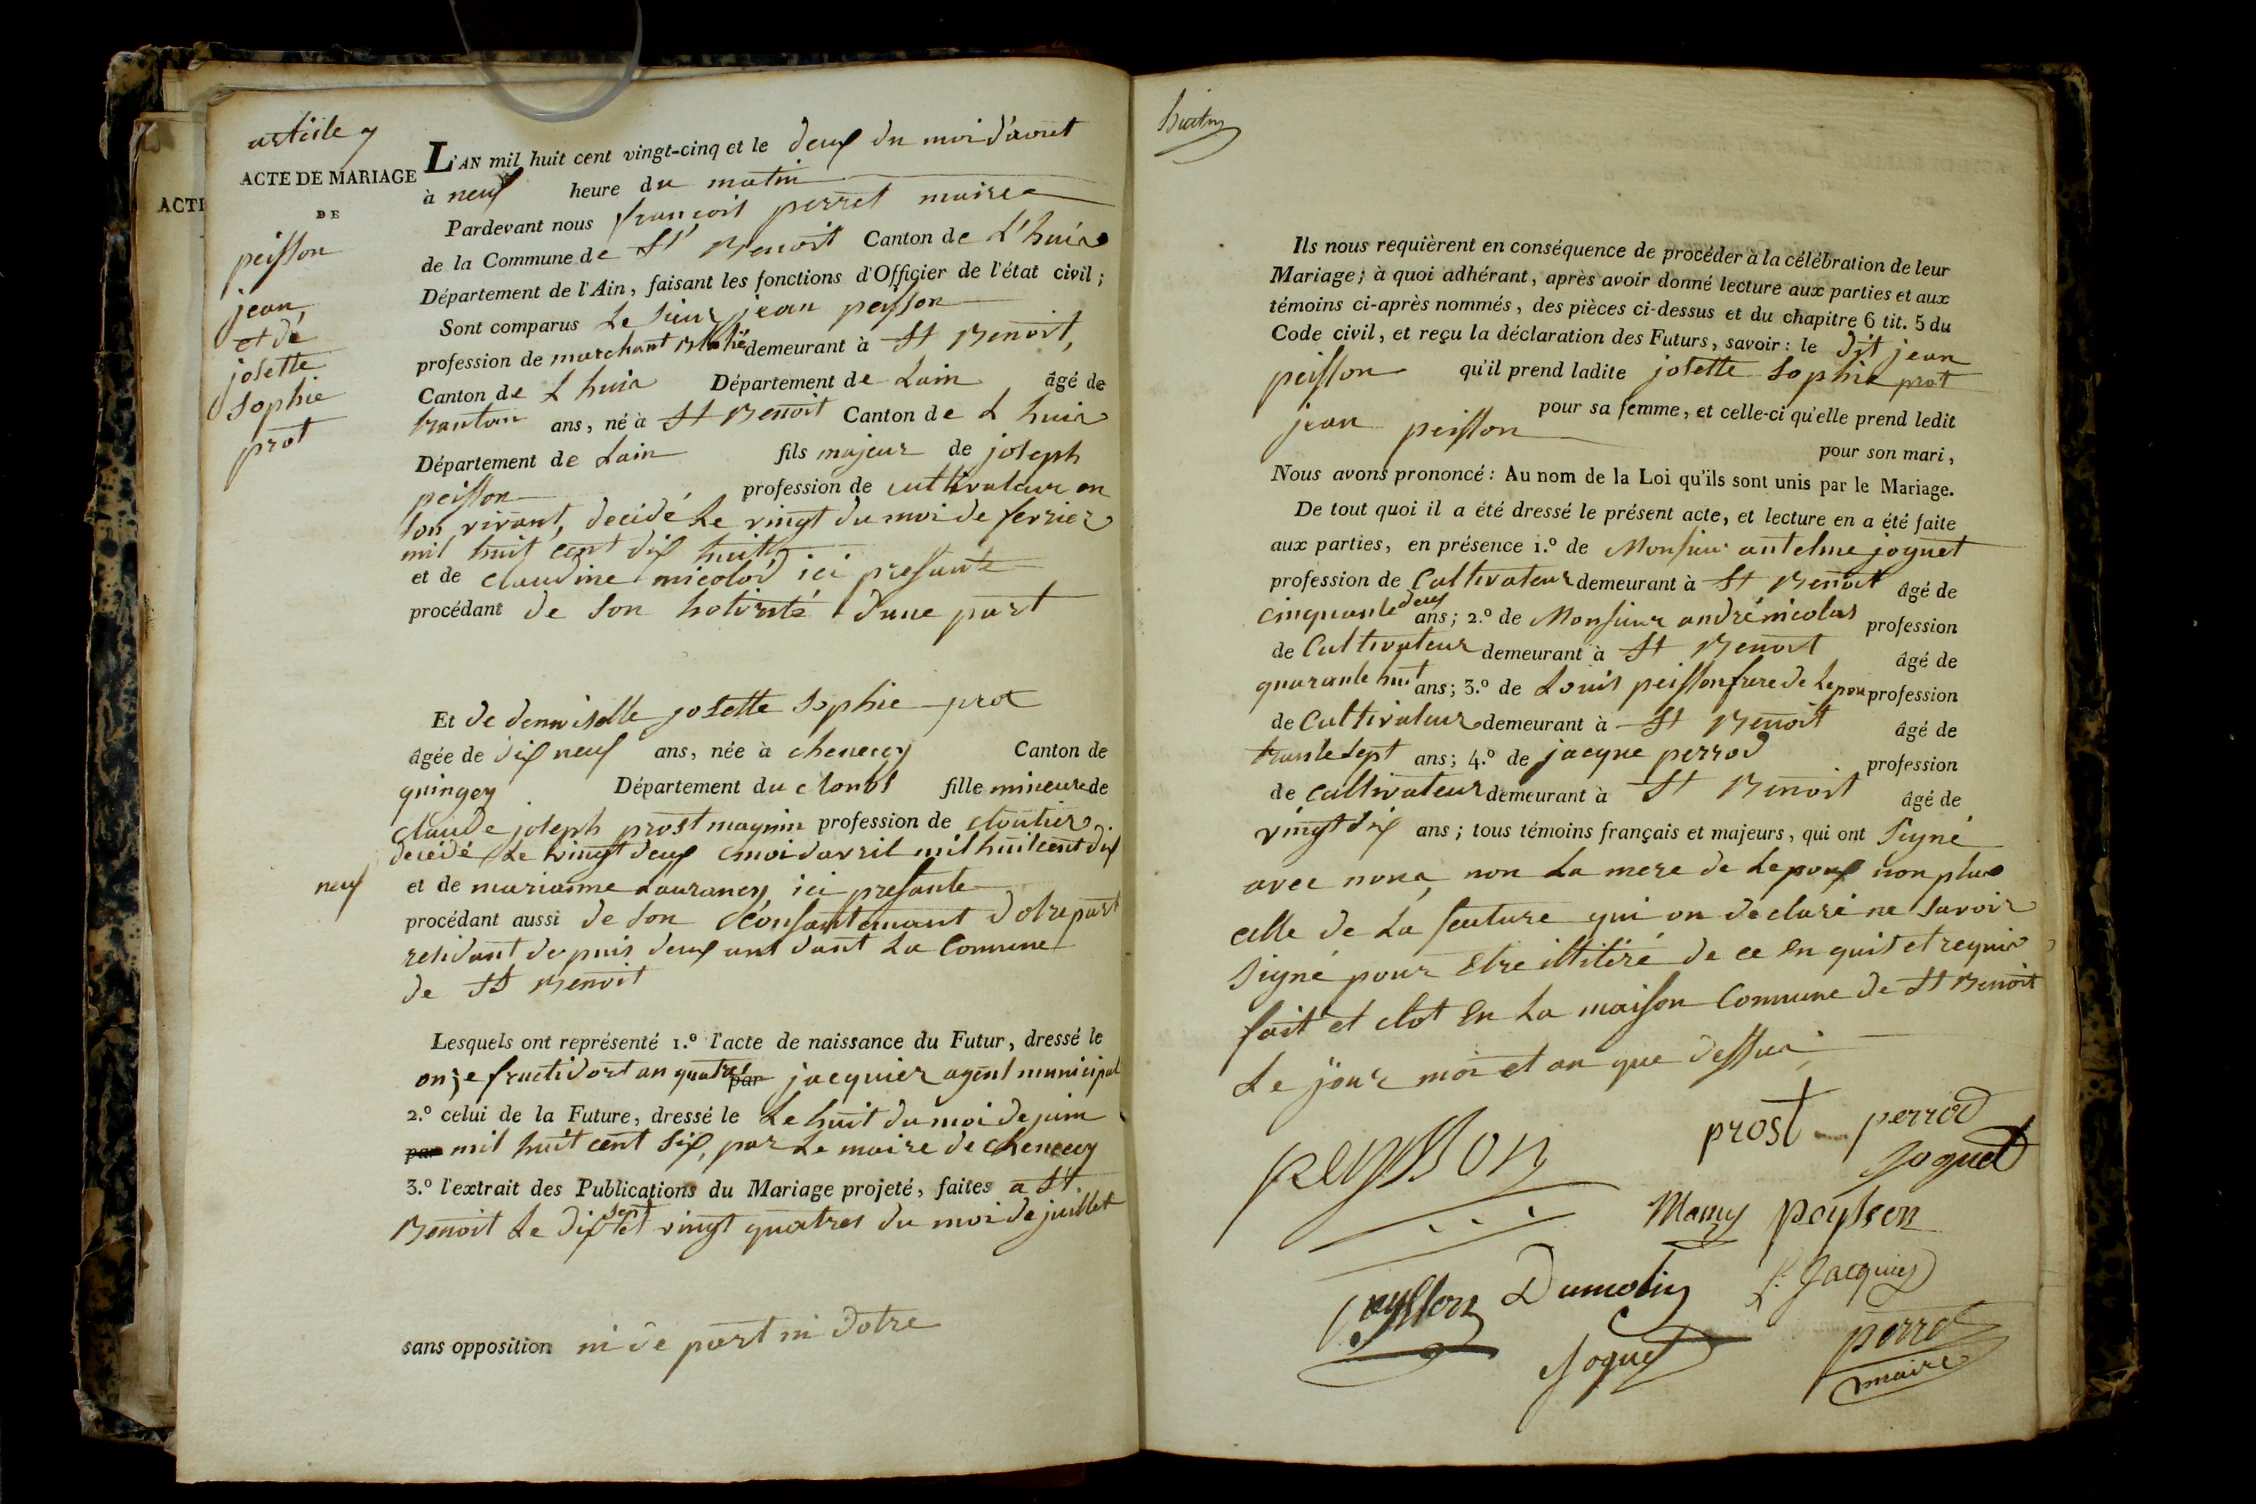 article 7
ACTE DE MARIAGE
DE
peisson
jean
et de
josette
sophie
prot
ACTE
L'AN mil huit cent vingt-cinq et le deux du moi d'aout
à neuf heure du matin
Pardevant nous françois perret maire
de la Commune de St Benoit Canton de L'huis
Département de l'Ain, faisant les fonctions d'Officier de l'état civil;
Sont comparus Le sieur jean peisson
profession de marchant demeurant à St Benoit,
Canton de L huis Département de Lain âgé de
ans, né à St Benoit Canton de L huis
Département de Lain fils majeur de joseph
peisson profession de cultivateur en
son vivant, decidé Le vingt du moi de ferrier
mil huit cent dix huit
et de claudine micolod ici presante
procédant de son hotorité d'une part
Et de demoiselle josette sophie prot
âgée de dix neuf ans, née à chenecey Canton de
quingey Département du doubs fille mineure de
claude joseph prost magnin profession de cloutier
decédé Le vingt deux moi davril mil huit cent dix
neuf
et de marianne Laurancy ici presante
procédant aussi de son consantemant dotre part
residant depuis deux ans dant La Commune
de St Benoit
Lesquels ont représenté 1.º l'acte de naissance du Futur, dressé le
onze fructidort an quatre par jacquier agent municipal
2.º celui de la Future, dressé le Le huit du moi de juin
par mil huit cent six, par Le maire de chenecey
3.º l'extrait des Publications du Mariage projeté, faites a St
Benoit Le dix sept et vingt quatres du moi de juillet
sans opposition ni de part ni dotre
Ils nous requièrent en conséquence de procéder à la célébration de leur
Mariage; à quoi adhérant, après avoir donné lecture aux parties et aux
témoins ci-après nommés, des pièces ci-dessus et du chapitre 6 tit. 5 du
Code civil, et reçu la déclaration des Futurs, savoir: le dit jean
peisson qu'il prend ladite josette sophie prot
pour sa femme, et celle-ci qu'elle prend ledit
jean peisson pour son mari,
Nous avons prononcé: Au nom de la Loi qu'ils sont unis par le Mariage.
De tout quoi il a été dressé le présent acte, et lecture en a été faite
aux parties, en présence 1.º de Monsieur antelme joguet
profession de Cultivateur demeurant à St Benoit âgé de
cinquante deux ans; 2.º de Monsieur andré nicolas profession
de Cultivateur demeurant à St Benoit âgé de
quarante huit ans; 3.º de Louis peisson frere de Lepou profession
de Cultivateur demeurant à St Benoit âgé de
trante sept ans; 4.º de jacque perrod profession
de cultivateur demeurant à St Benoit âgé de
vingt dix ans; tous témoins français et majeurs, qui ont Signé
avec nous, non La mere de Lepoux non plus
celle de La feuture qui on declaré ne savoir
signé pour Etre illitéré de ce Enquis et requis
fait et clot En La maison Commune de St Benoit
Le jour moi et an que dessus,
peysson
prost perrod
Joguet
Mamy peysson
peysson Dumolin f. Jacquier
Joguet
perret
maire